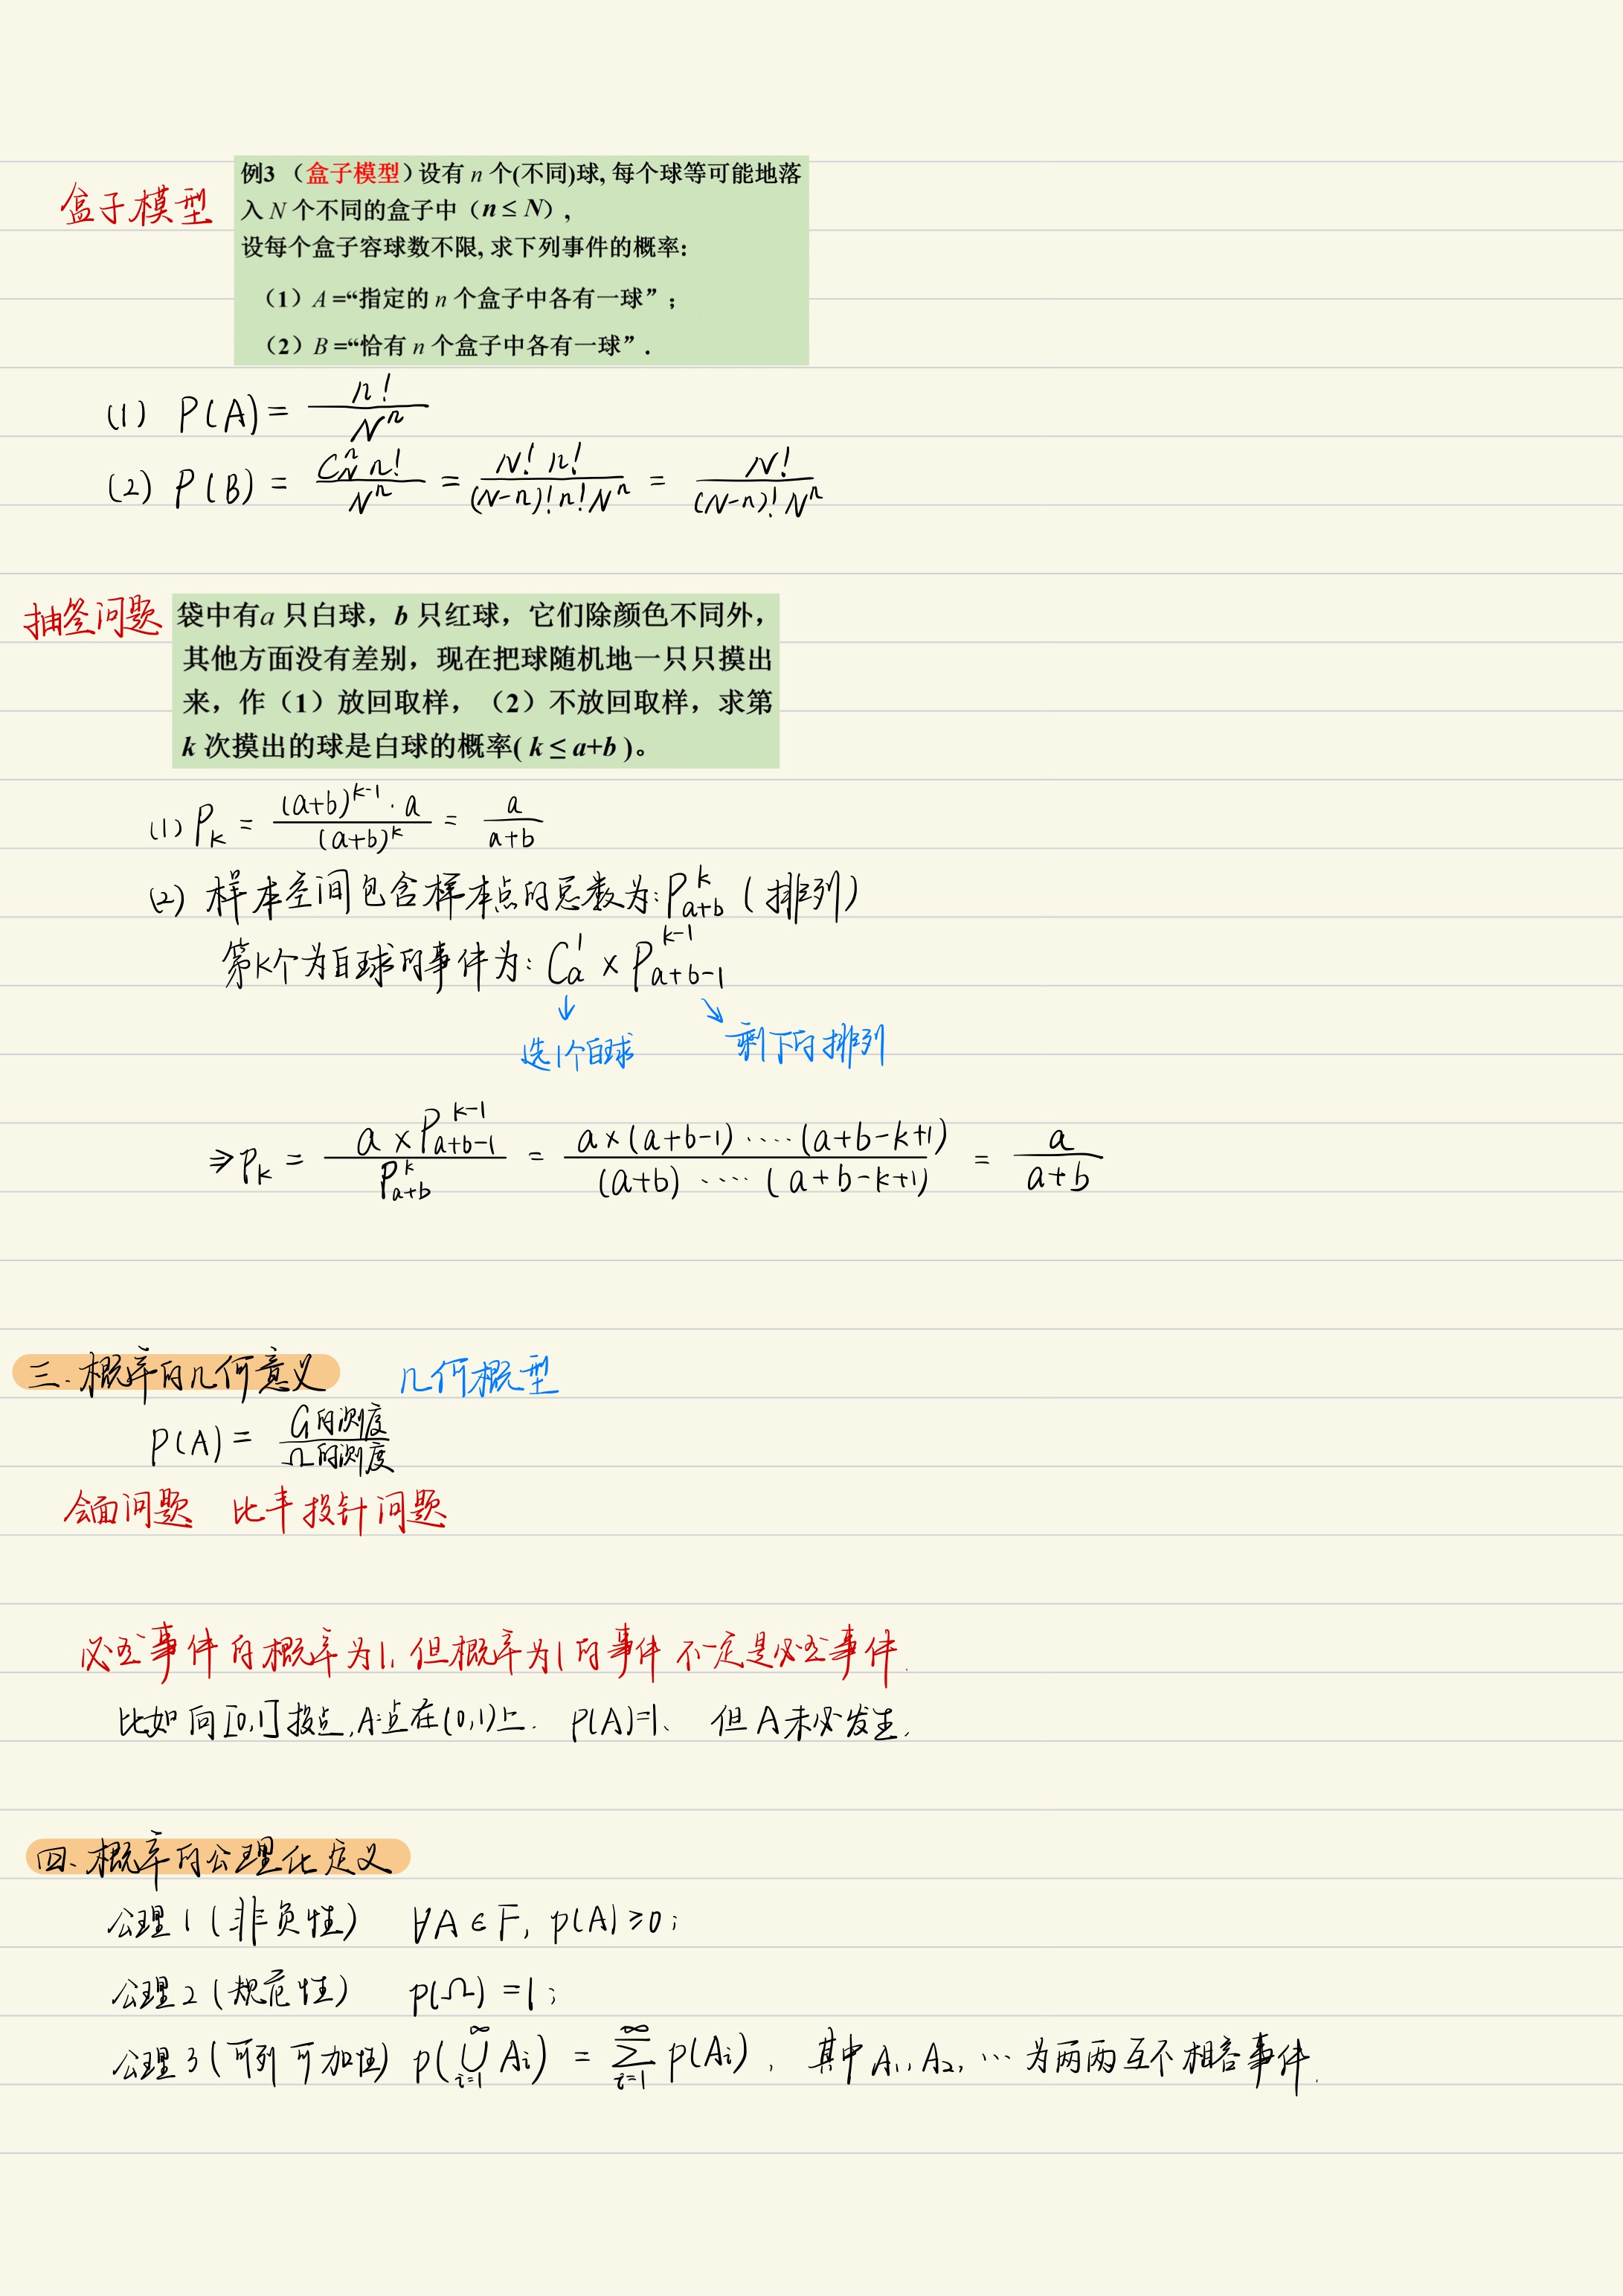 盒子模型
例3 （盒子模型）设有 n 个(不同)球, 每个球等可能地落
入 N 个不同的盒子中（n ≤ N）,
设每个盒子容球数不限, 求下列事件的概率:
（1）A =“指定的 n 个盒子中各有一球”；
（2）B =“恰有 n 个盒子中各有一球”.
(1) P(A) = n! / N^n
(2) P(B) = C_N^n n! / N^n = N! n! / (N-n)! n! N^n = N! / (N-n)! N^n
抽签问题
袋中有a 只白球，b 只红球，它们除颜色不同外，
其他方面没有差别，现在把球随机地一只只摸出
来，作（1）放回取样，（2）不放回取样，求第
k 次摸出的球是白球的概率( k ≤ a+b )。
(1) P_k = (a+b)^{k-1} · a / (a+b)^k = a / a+b
(2) 样本空间包含样本点的总数为: P_{a+b}^k (排列)
第k个为白球的事件为: C_a^1 × P_{a+b-1}^{k-1}
↓ ↘
选1个白球 剩下的排列
⇒ P_k = a × P_{a+b-1}^{k-1} / P_{a+b}^k = a×(a+b-1)····(a+b-k+1) / (a+b)····(a+b-k+1) = a / a+b
三. 概率的几何意义 几何概型
P(A) = G的测度 / Ω的测度
会面问题 比丰投针问题
必然事件的概率为1, 但概率为1的事件不一定是必然事件.
比如向[0,1]投点, A:点在(0,1)上. P(A)=1、 但A未必发生.
四. 概率的公理化定义
公理1 (非负性) ∀A∈F, p(A)≥0;
公理2 (规范性) p(Ω) =1;
公理3 (可列可加性) p(⋃_{i=1}^∞ A_i) = ∑_{i=1}^∞ p(A_i), 其中 A_1, A_2, ··· 为两两互不相容事件.